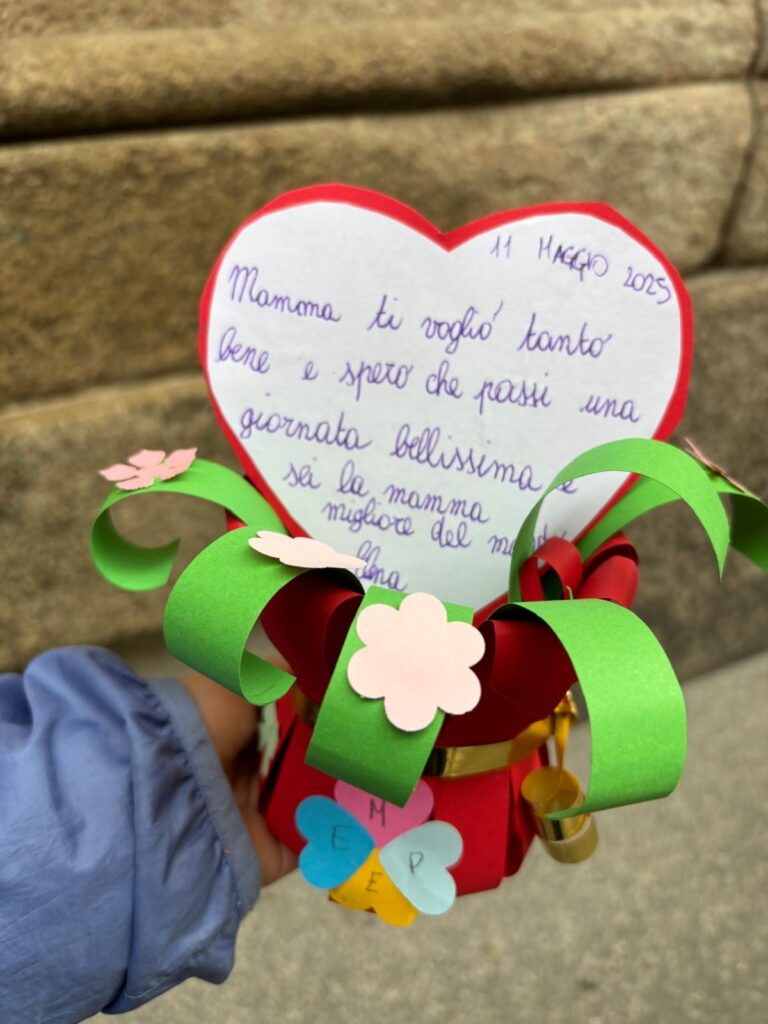 11 MAGGIO 2025
Mamma ti voglio tanto
bene e spero che passi una
giornata bellissima e
sei la mamma
migliore del
M
E P
E